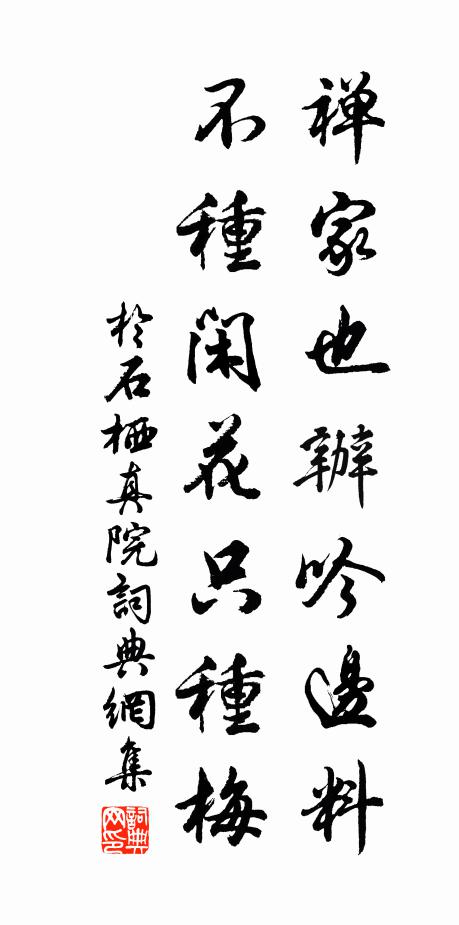 禅家也辦吟邊料
不種閑花只種梅
於石栖真院詞典網集
詞典
网印